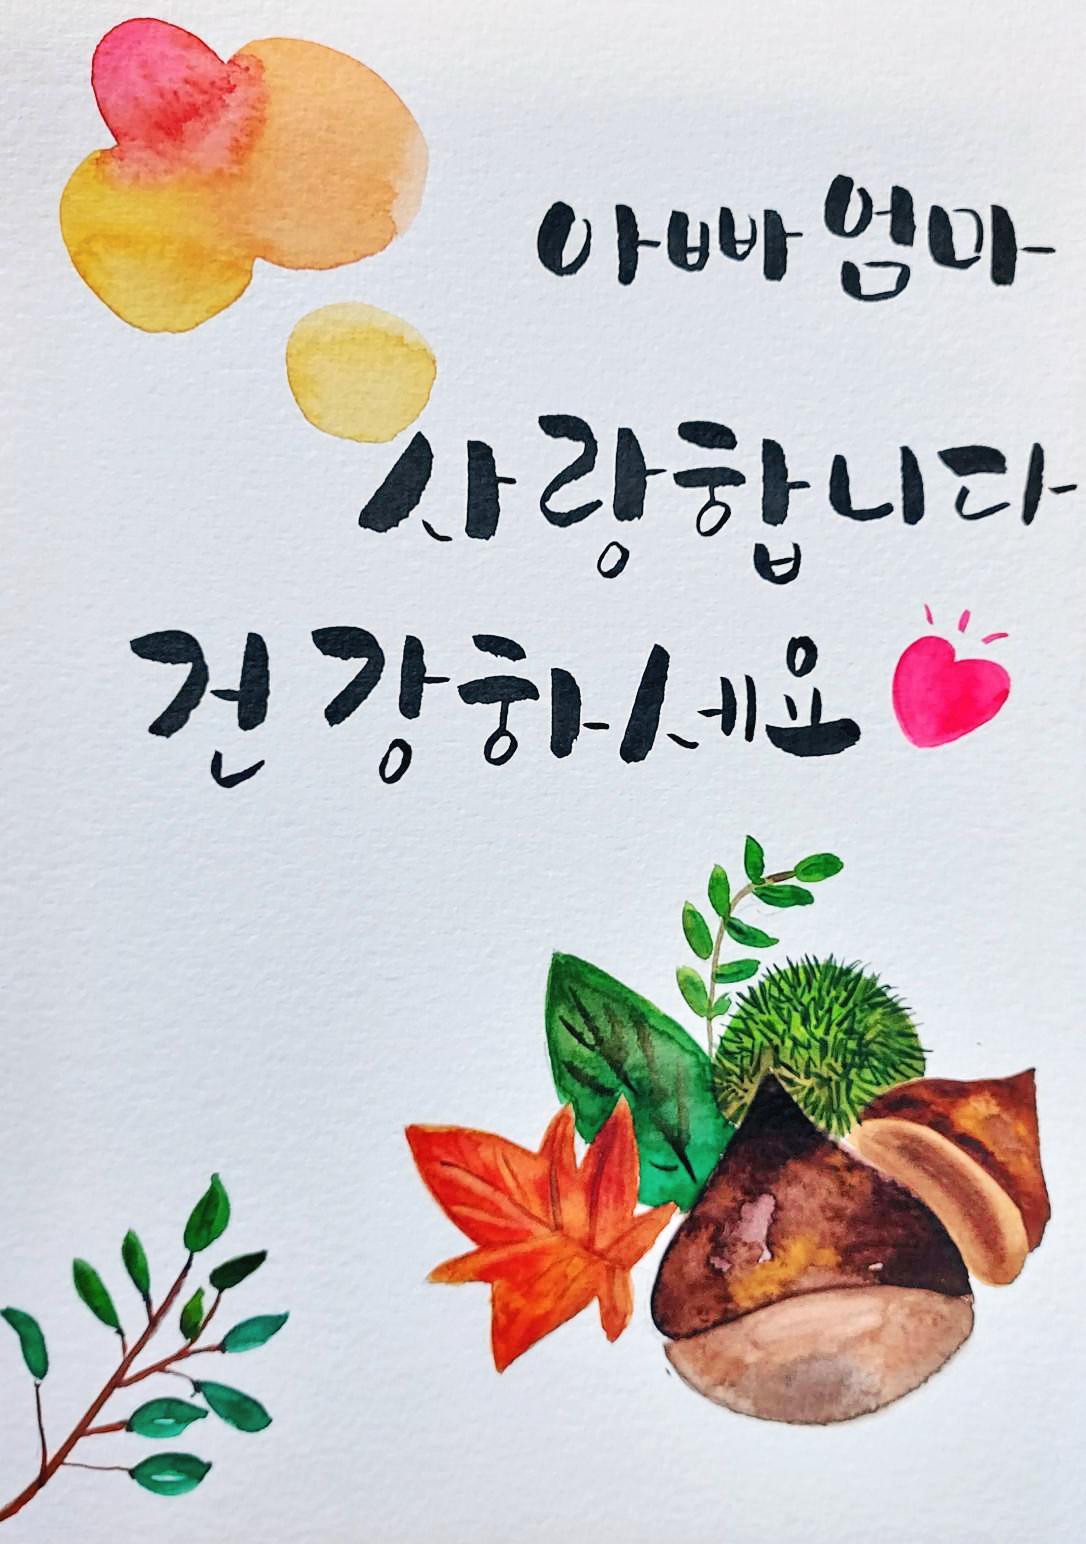 아빠 엄마
사랑합니다
건강하세요